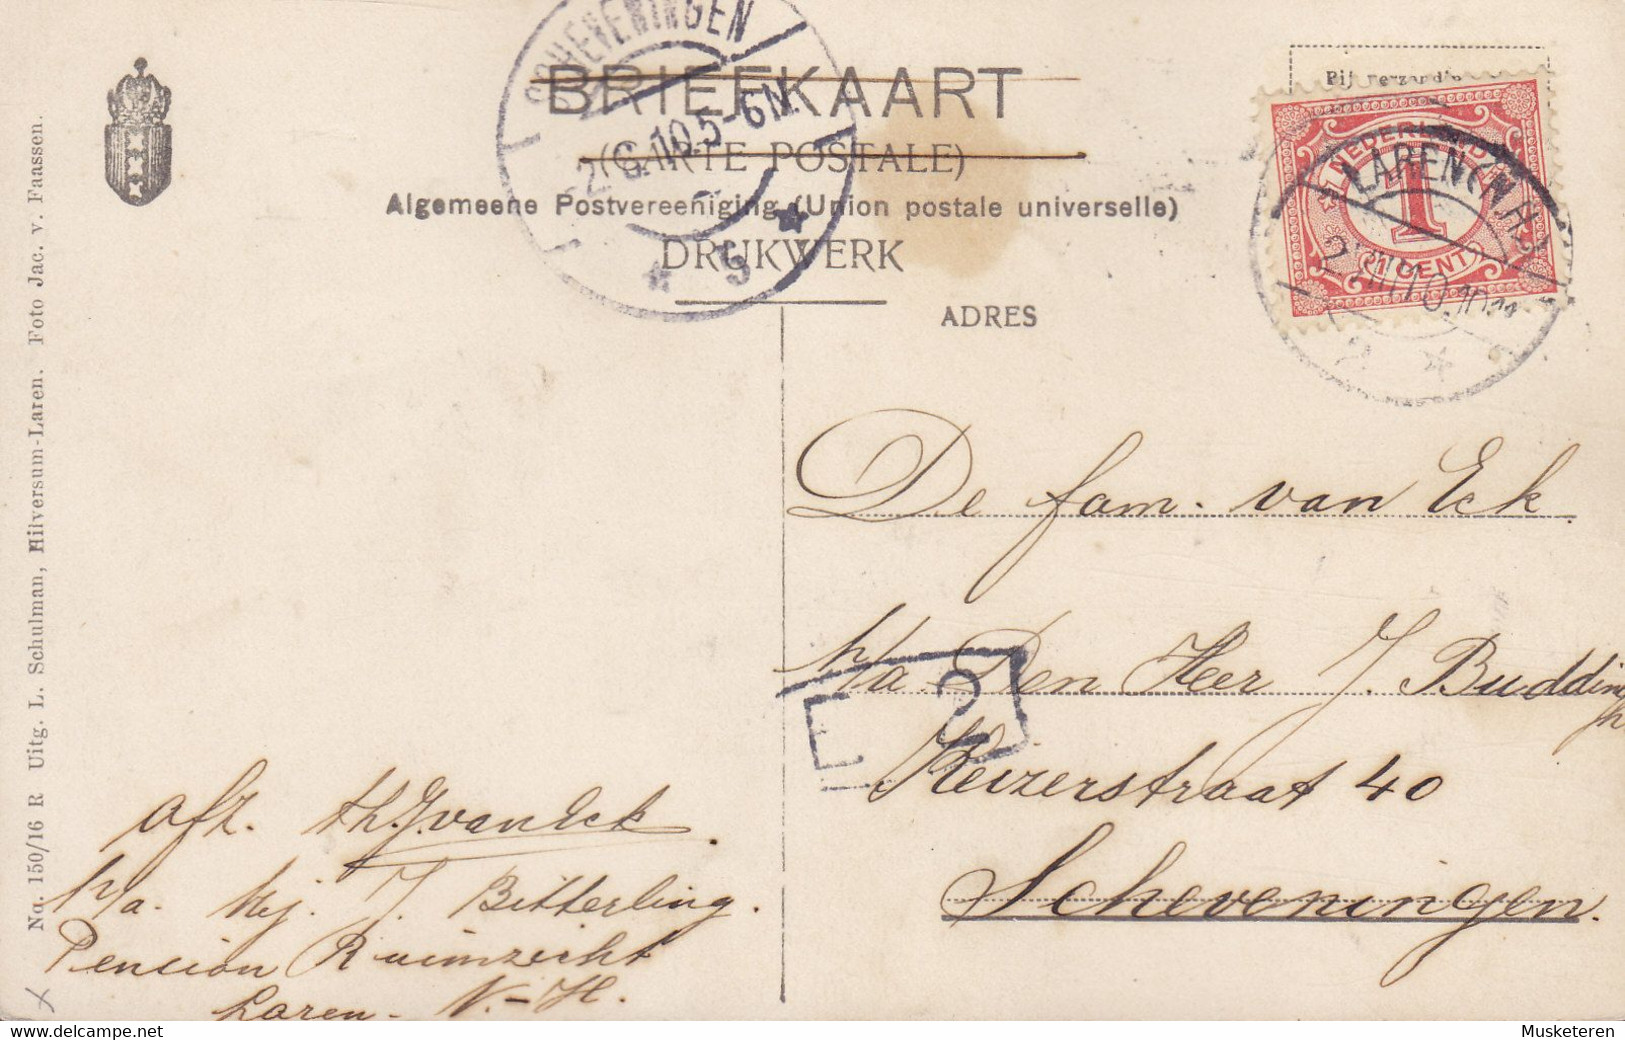 BRIEFKAART
(CARTE POSTALE)
Algemeene Postvereeniging (Union postale universelle)
DRUKWERK
ADRES
SCHEVENINGEN
2.8.10.5-6N
5
Bij verzending
NEDERLAND
1
1 CENT
LAREN (N.H.)
2 VIII 10.10-11
De fam. van Eck
p/a Den Heer J. Buddingh
Keizerstraat 40
Scheveningen.
afz. Th. J. van Eck.
p/a. Mej. J. Bitterling.
Pension Ruimzicht
Laren - N.-H.
No. 150/16 R Uitg. L. Schulman, Hilversum-Laren. Foto Jac. v. Faassen.
Musketeren